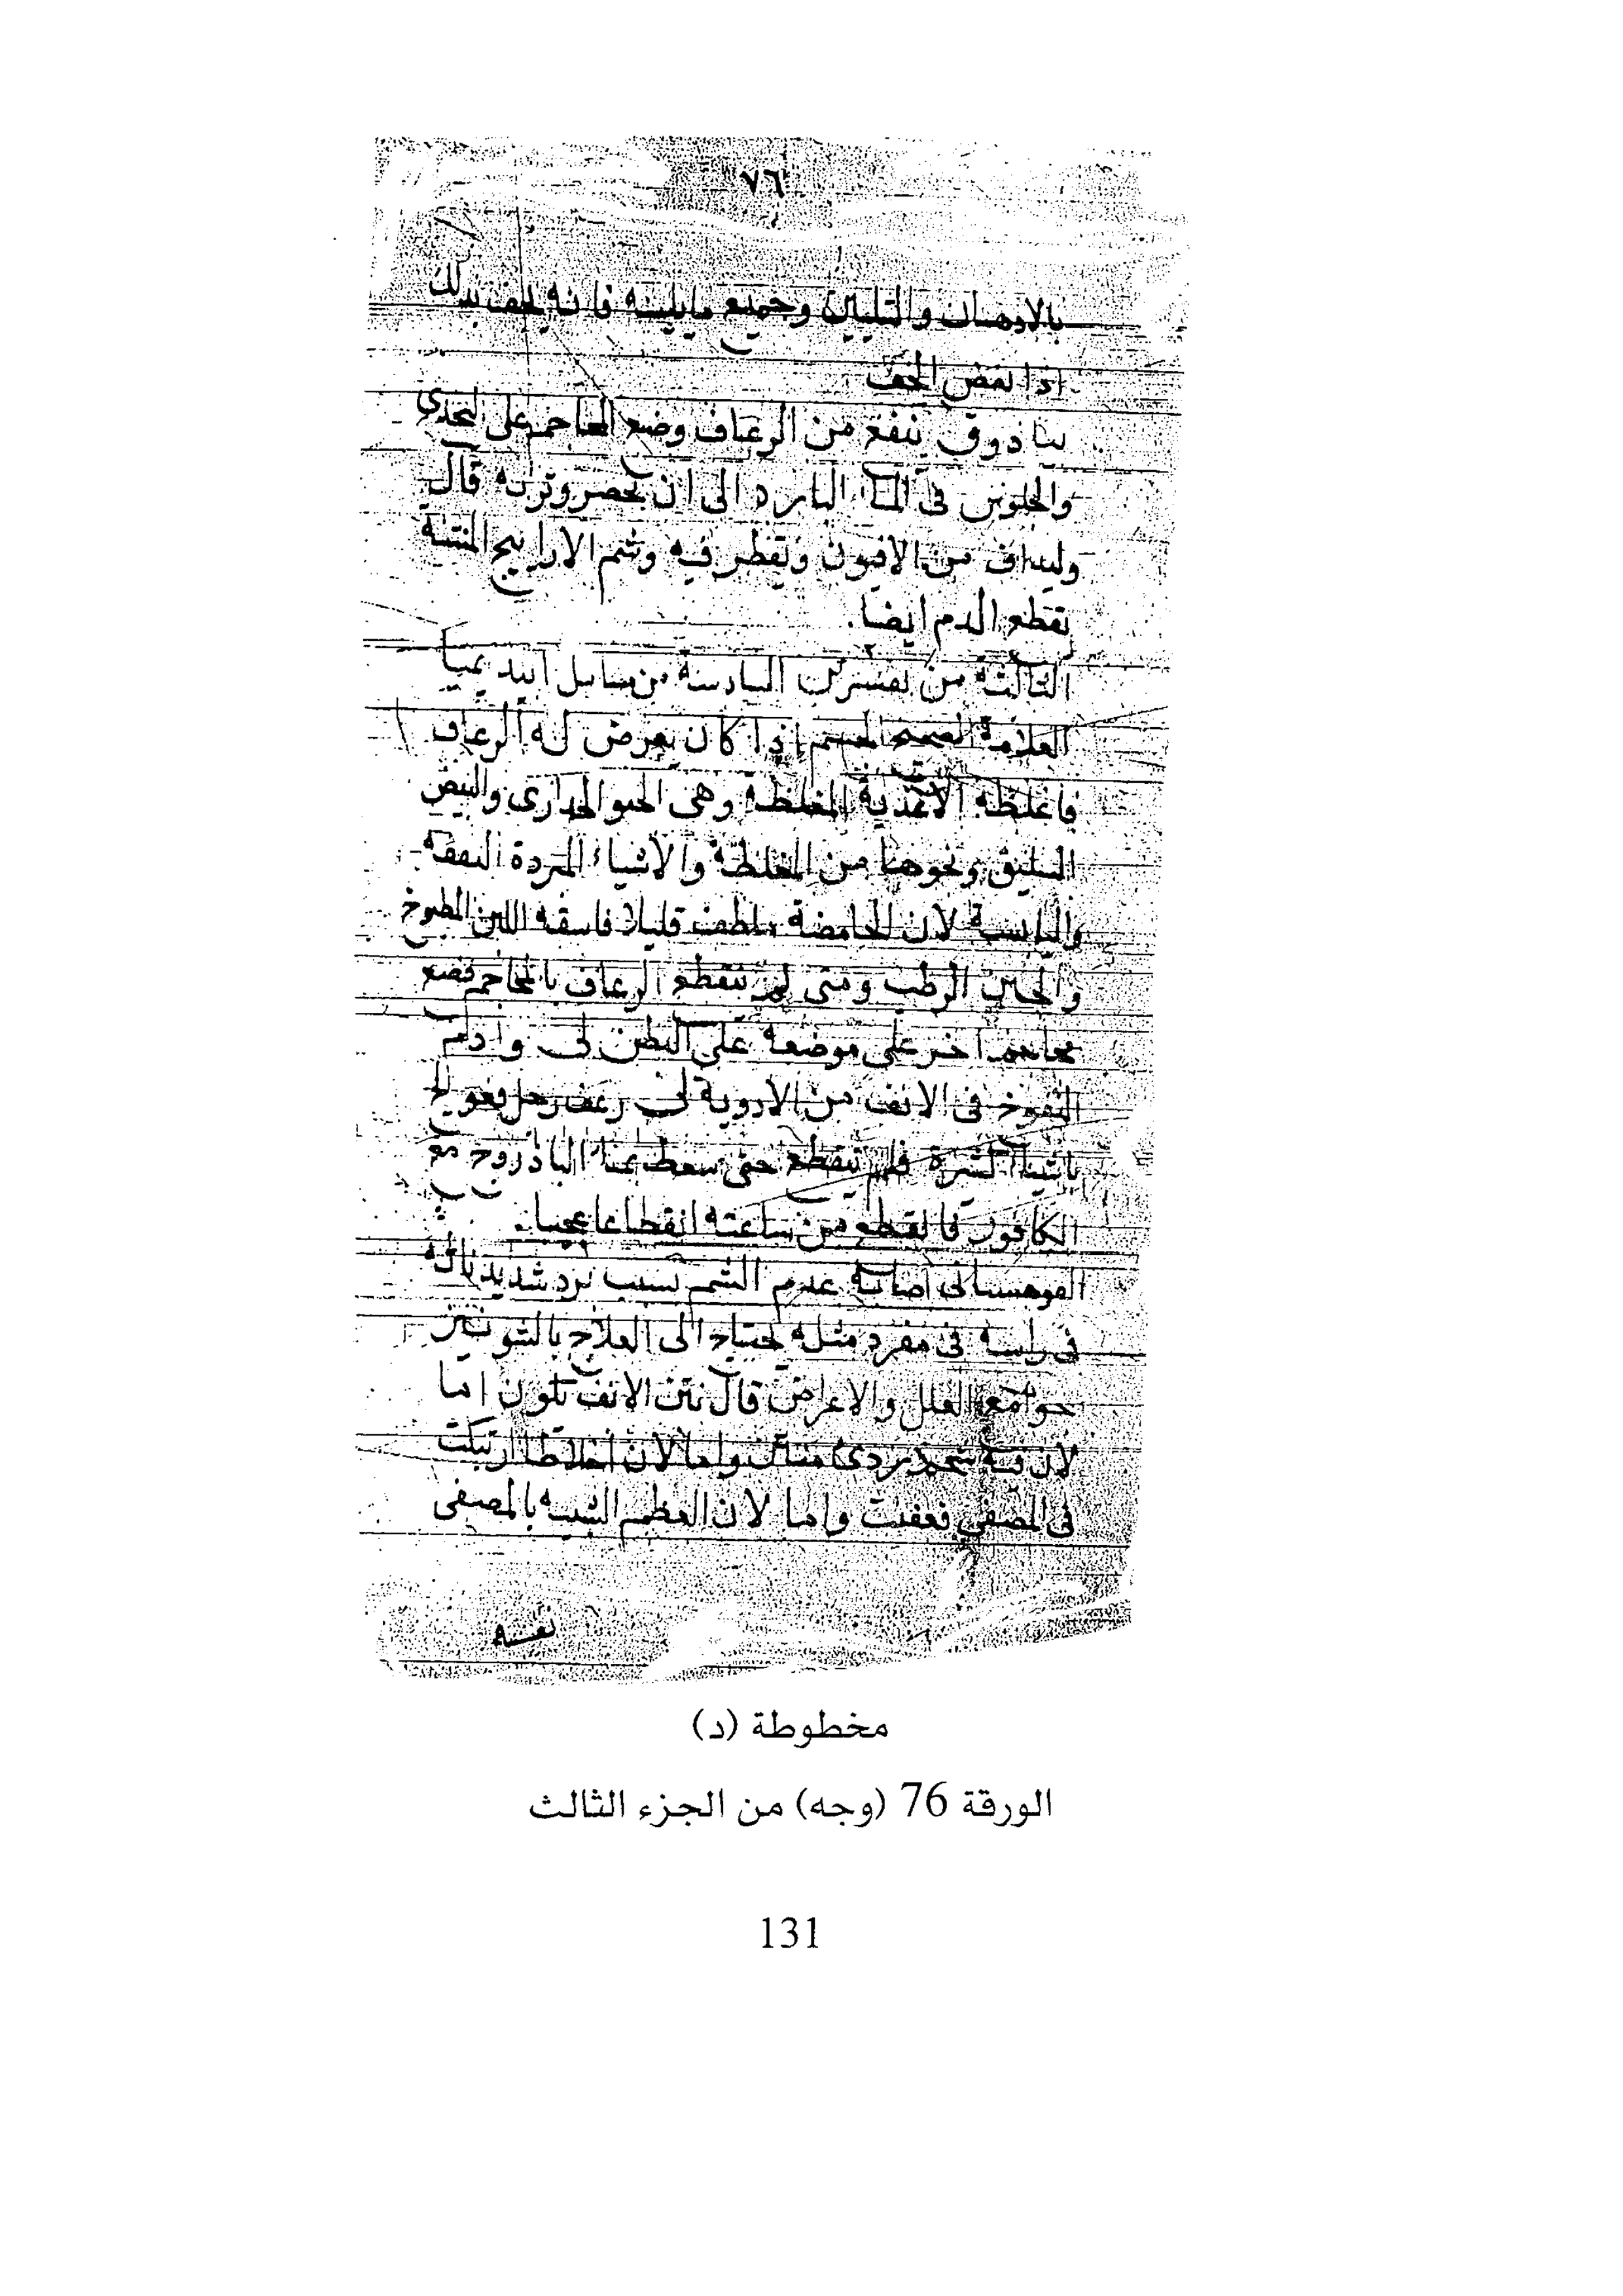 ٧٦
بالادهان والتليين وجميع ما يلينه فانه يخف بذلك
اذا نقص الخف
بياذوق ينفع من الرعاف وضع المحاجم على الثدي
والجلوس في الماء البارد الى ان يخصر وتربه قال
وليداف من الافيون ويقطر فيه وشم الاراييح المنتنة
تقطع الدم ايضا.
الثالثة من تفسير السادسة من مسايل ابيديميا
العلامة الصحيح الجسم اذا كان يعرض له الرعاف
فاغلظه الاغذية المغلظة وهي الحنو الحواري والبيض
السليق ونحوها من المغلظة والاشياء المبردة التفهة
واليابسة لان الحامضة تلطف قليلا فاسقه اللبن المطبوخ
والجبن الرطب ومتى لم ينقطع الرعاف بالمحاجم فضع
محاجم اخر على موضعه على البطن لى وادم
النفوخ في الانف من الادوية لى رعف رجل فعولج
باشياء كثيرة فلم ينقطع حتى سعط بماء الباذروج مع
الكافور فانقطع من ساعته انقطاعا عجيبا.
القوهستاني اصابه عدم الشم بسبب برد شديد ناله
في راسه في مفرد مثله يحتاج الى العلاج بالشونيز
جوامع العلل والاعراض قال نتن الانف تكون اما
لان فيه ردى واما لان اخلاطا ارتبكت
في المصفى فعفنت واما لان العظم الشبيه بالمصفى
نفسه
مخطوطة (د)
الورقة 76 (وجه) من الجزء الثالث
131